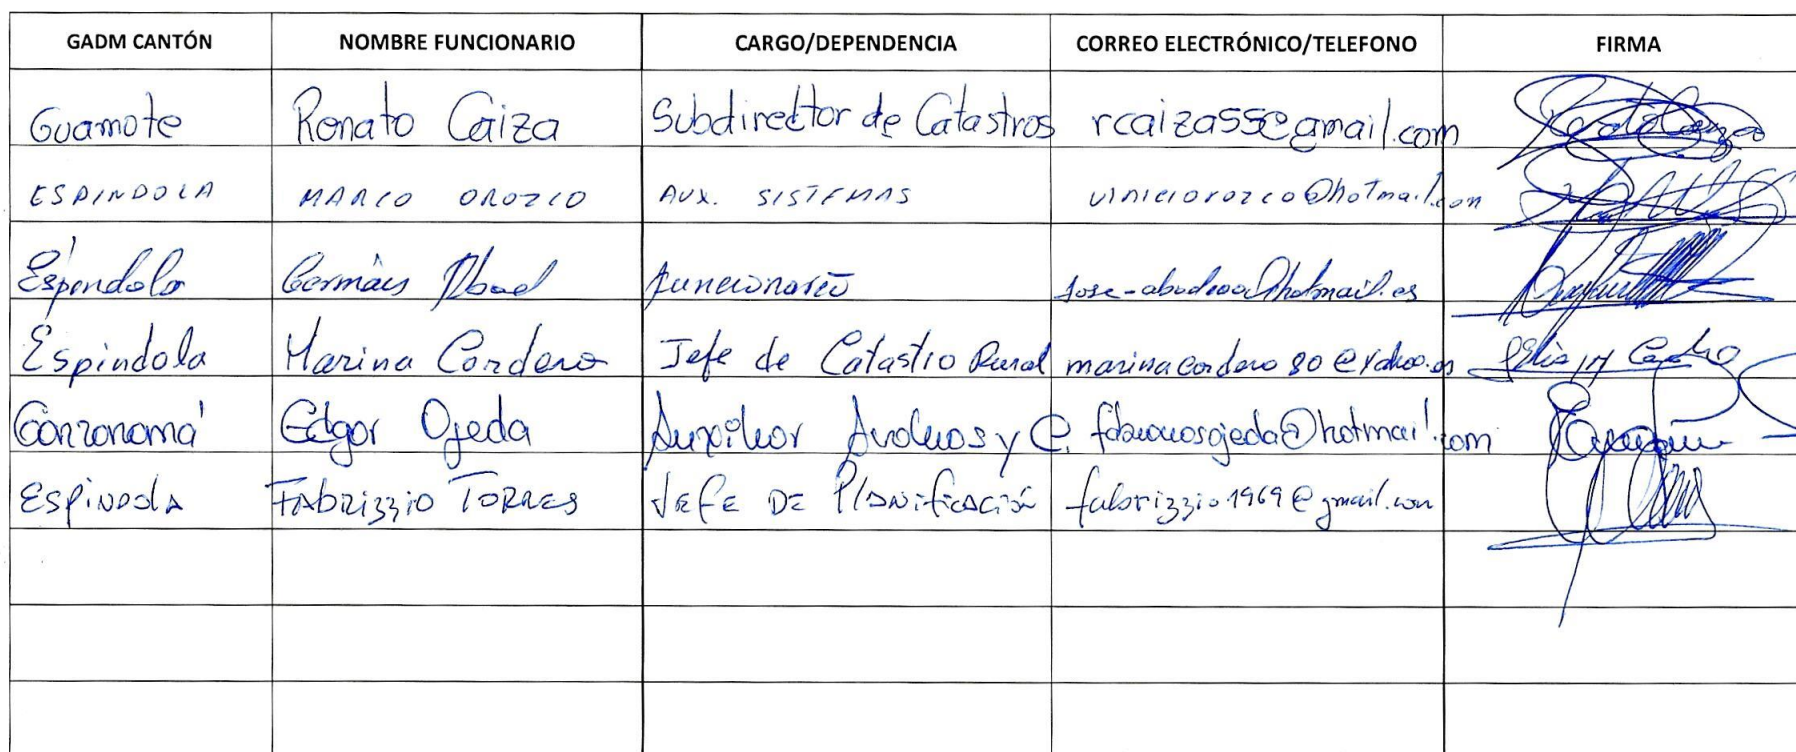 GADM CANTÓN NOMBRE FUNCIONARIO CARGO/DEPENDENCIA CORREO ELECTRÓNICO/TELEFONO FIRMA
Guamote Renato Caiza Subdirector de Catastros rcaiza55@gmail.com
ESPINDOLA MARCO OROZCO AUX. SISTEMAS viniciorozco@hotmail.com
Espíndola Germán Abad funcionario
Espindola Marina Cordero Jefe de Catastro Rural marinacordero80@yahoo.es
Gonzanamá Edgar Ojeda Auxiliar Avaluos y C.
ESPINDOLA FABRIZZIO TORRES JEFE DE PLANIFICACIÓN fabrizzio1969@gmail.com